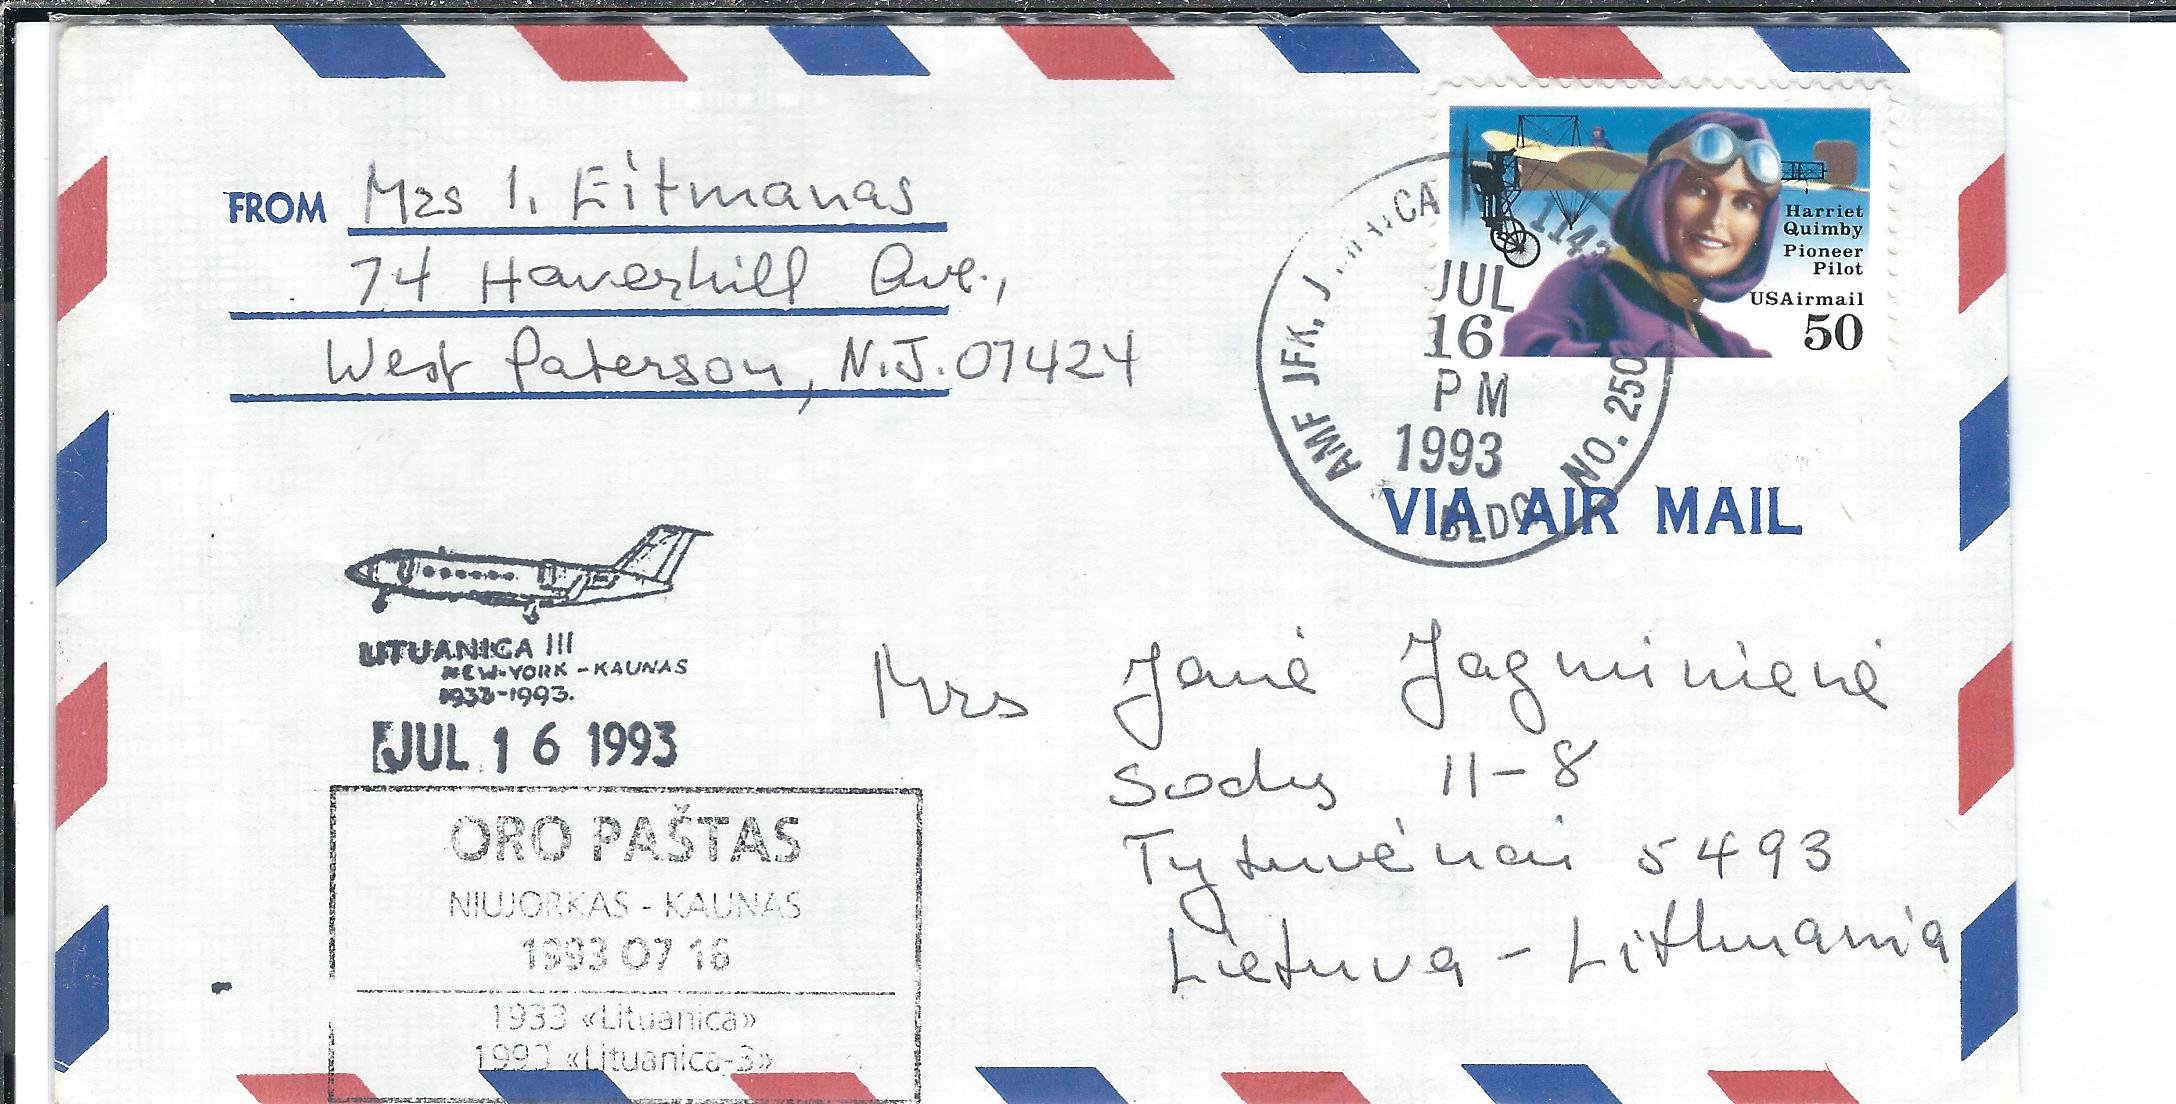 FROM Mrs I. Eitmanas
74 Haverhill Ave.,
West Paterson, N.J. 07424
Harriet
Quimby
Pioneer
Pilot
USAirmail
50
AMF JFK, NY 1143
JUL
16
PM
1993
BLDG NO. 250
VIA AIR MAIL
LITUANICA III
NEW-YORK - KAUNAS
1933-1993.
JUL 16 1993
Mrs Janė Jagminienė
Sodų 11-8
Tytuvėnai 5493
Lietuva - Lithuania
ORO PAŠTAS
NIUJORKAS - KAUNAS
1993 07 16
1933 «Lituanica»
1993 «Lituanica-3»